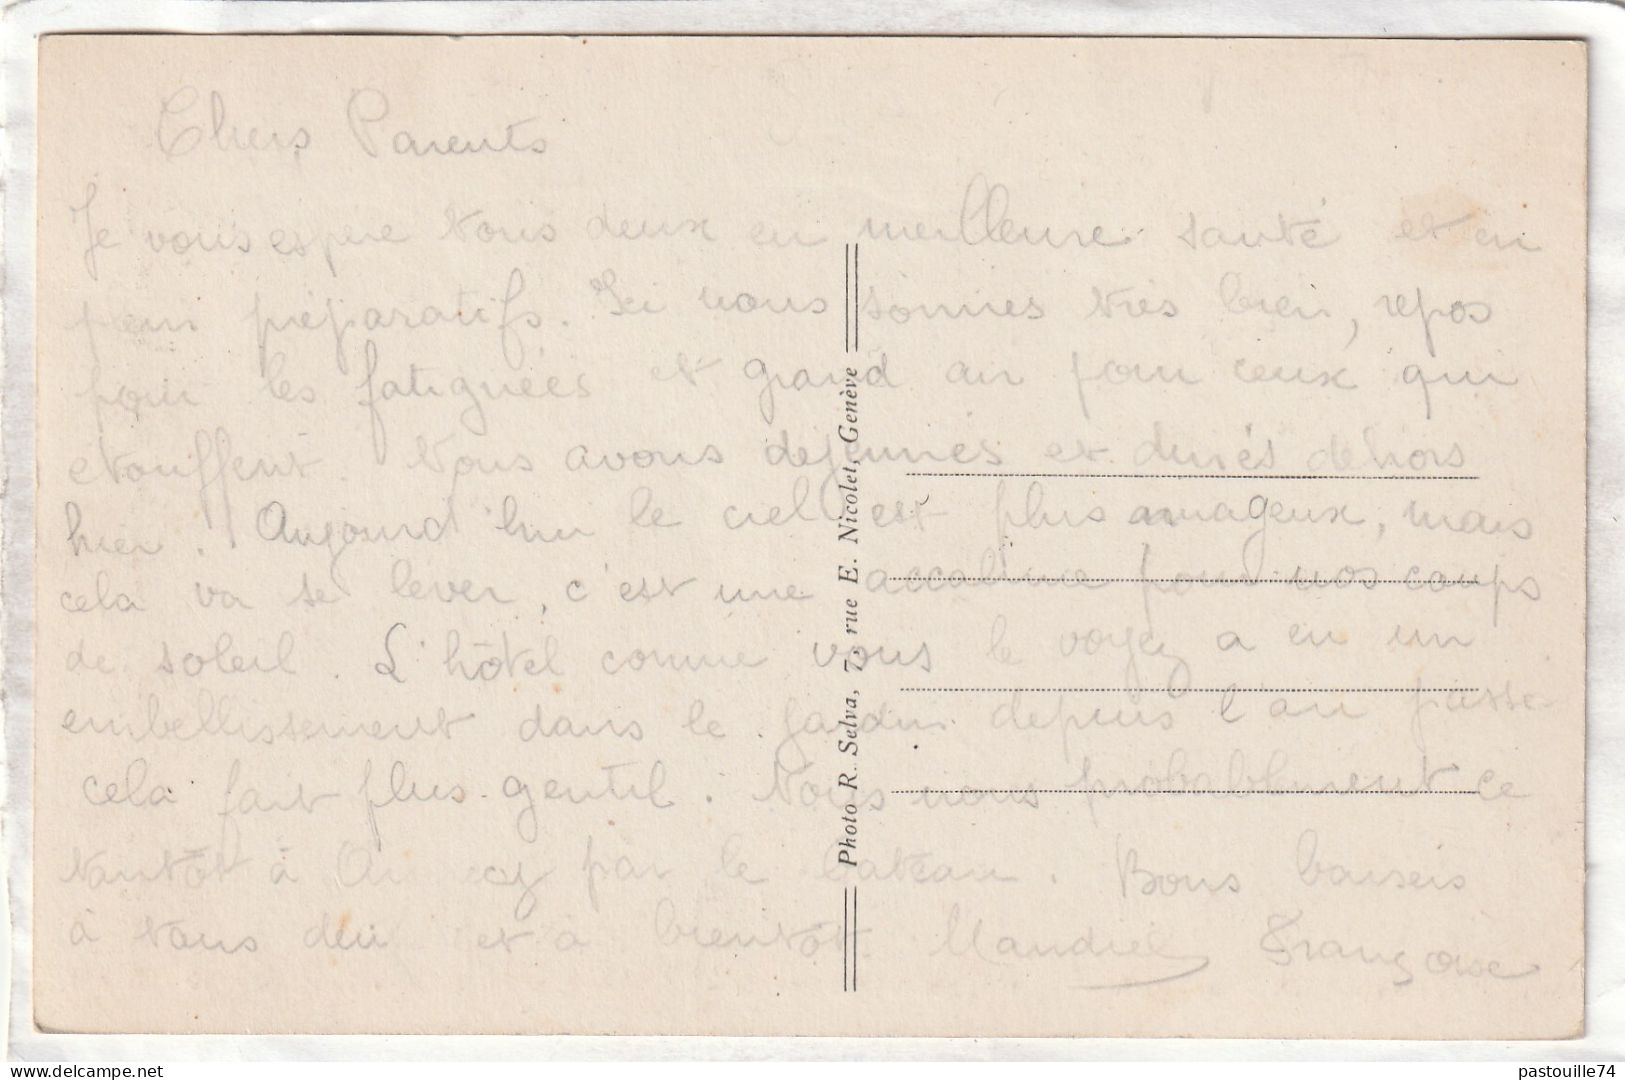 Chers Parents
Je vous espère tous deux en meilleure santé et en
plein préparatifs. Ici nous sommes très bien, repos
pour les fatiguées et grand air pour ceux qui
etouffent. Nous avons dejeunés et dinés dehors
hier. Aujourd'hui le ciel est plus nuageux, mais
cela va se lever, c'est une accalmie pour nos coups
de soleil. L'hôtel comme vous le voyez a eu un
embellissement dans le jardin depuis l'an passé
cela fait plus gentil. Nous probablement ce
tantôt à par le bateau. Bons baisers
à tous deux et à bientôt Françoise
Photo R. Selva, 7, rue E. Nicolet, Genève
pastouille74